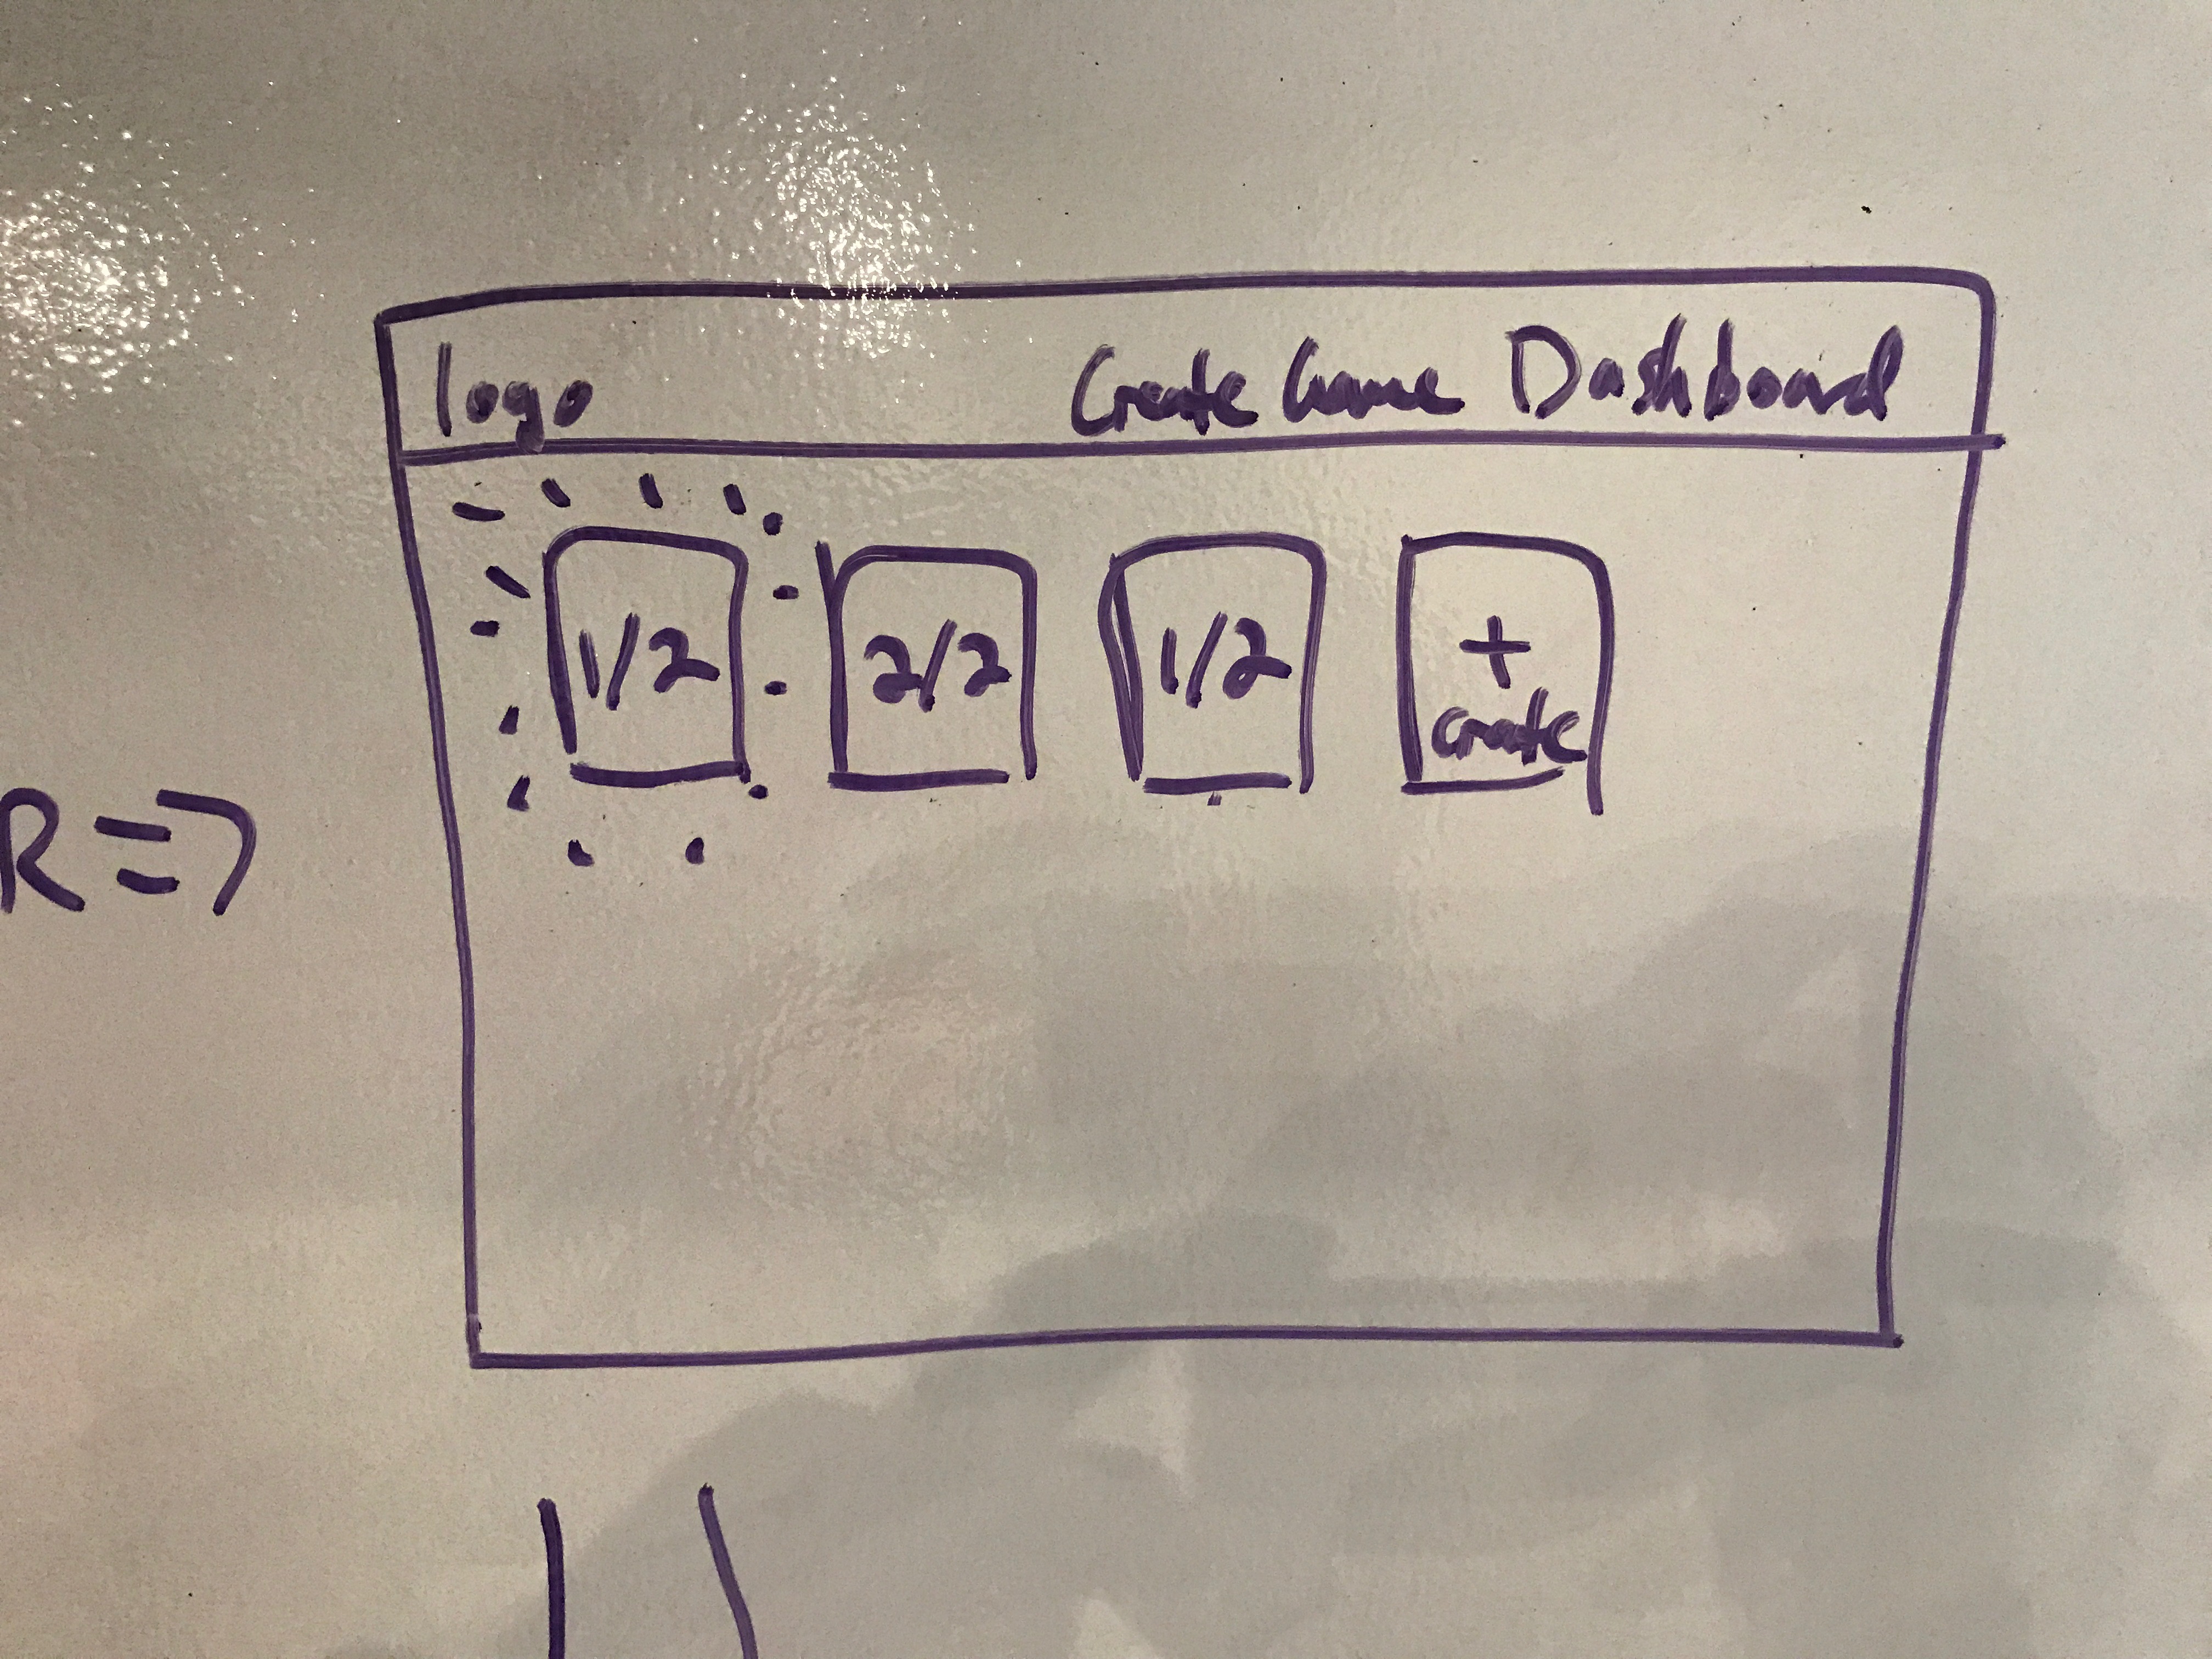 logo Create Game Dashboard
1/2 2/2 1/2 +
create
R =>